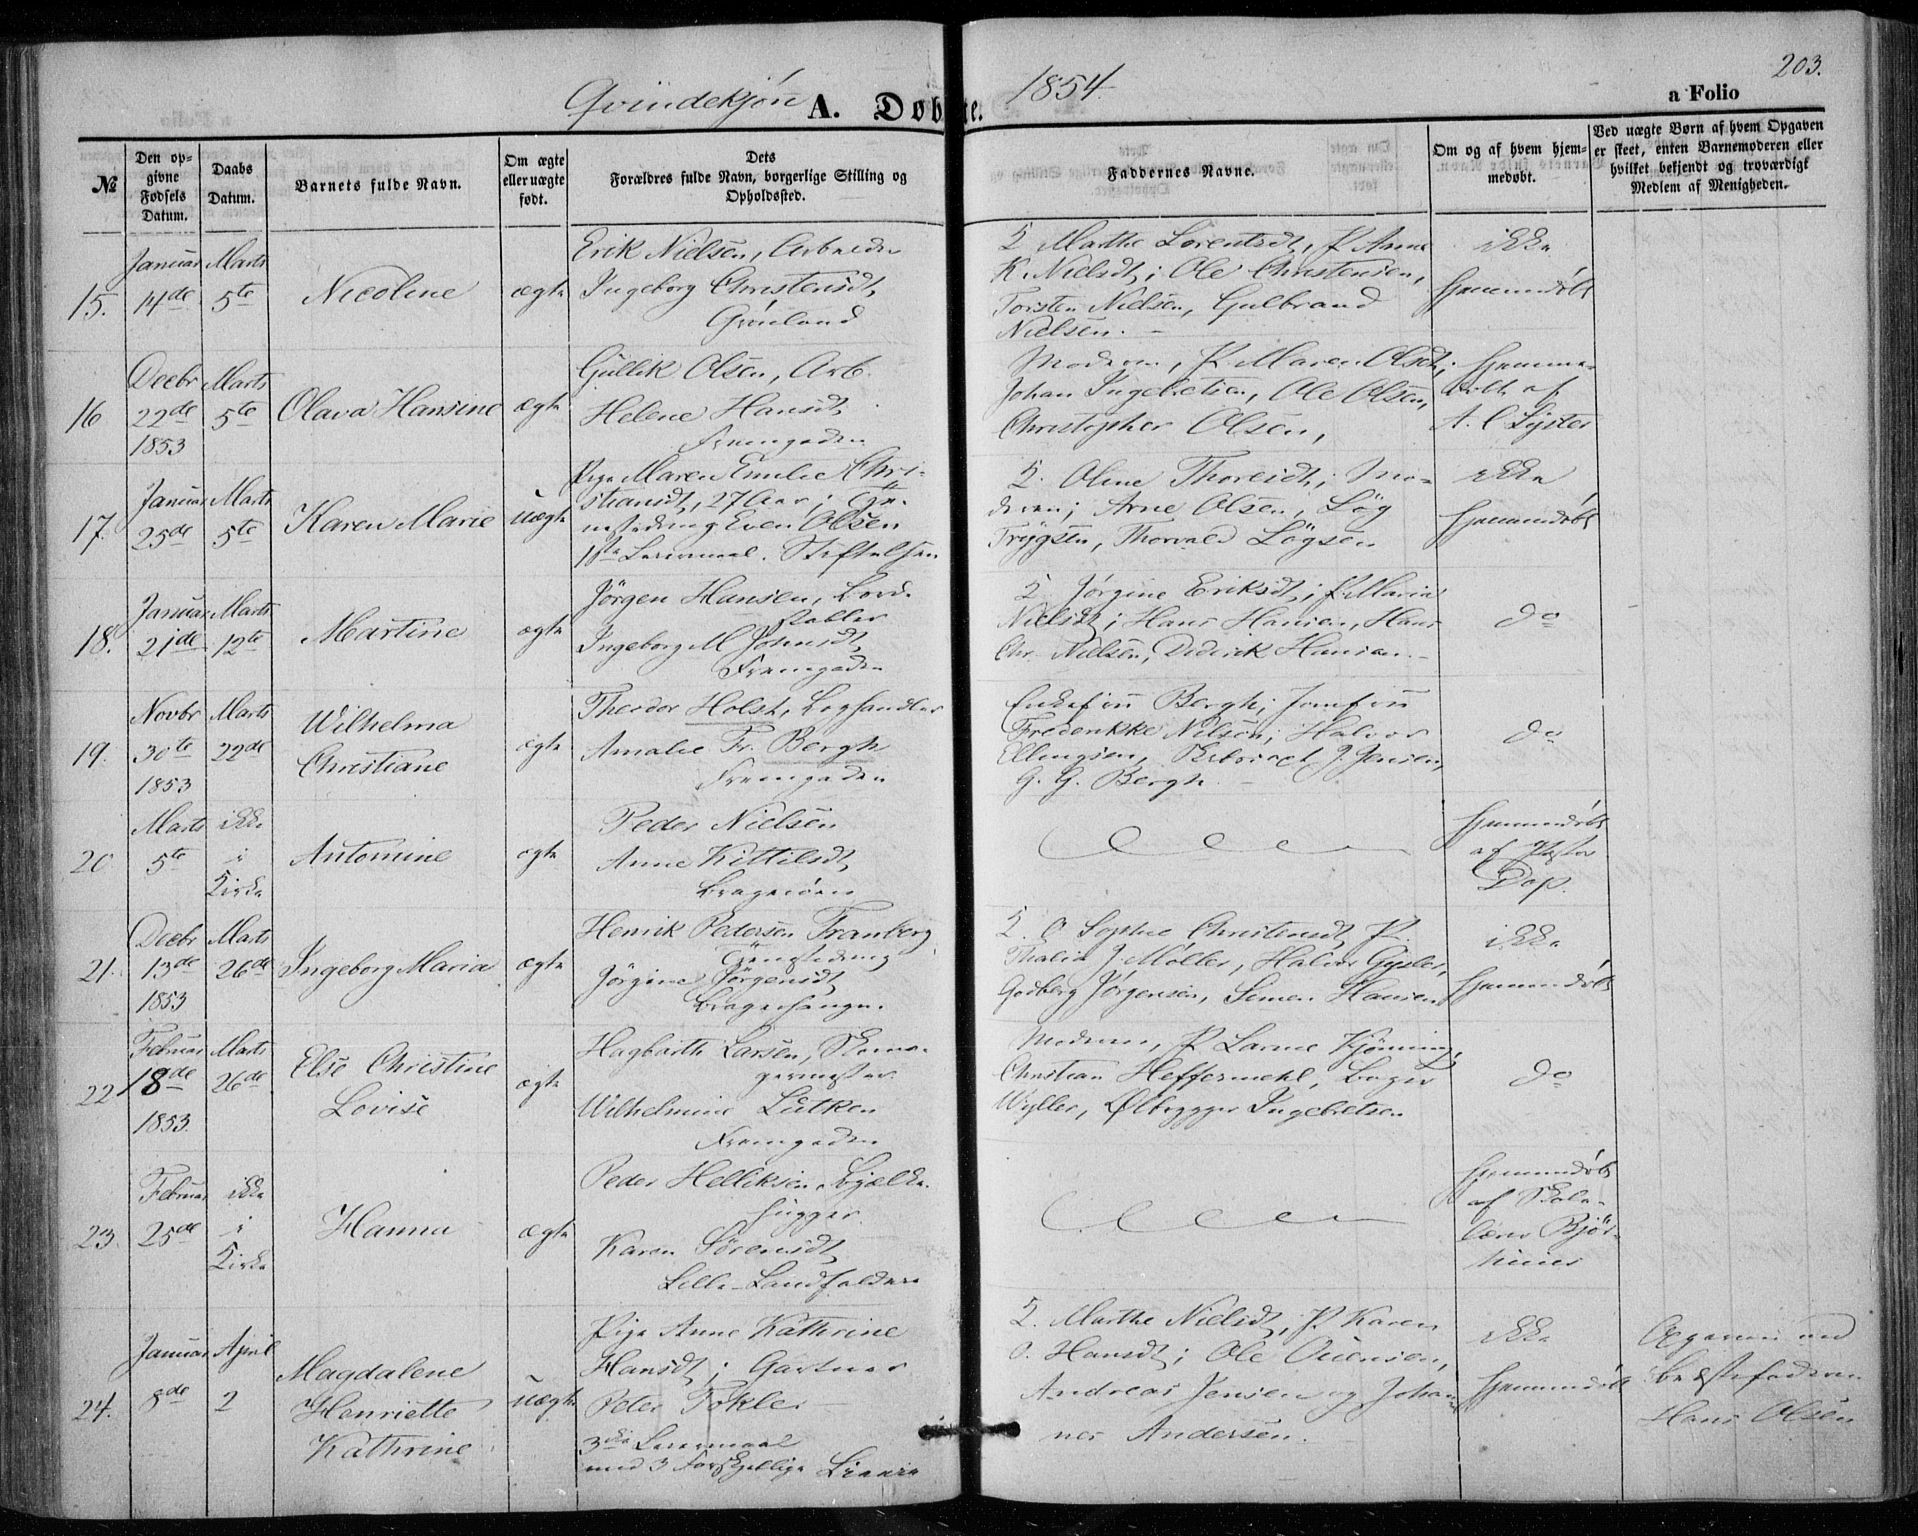 203.
Qvindekjøn A. Døbte. 1854 a Folio
№
Den opgivne Fødsels Datum.
Daabs Datum.
Barnets fulde Navn.
Om ægte eller uægte født.
Dets Forældres fulde Navn, borgerlige Stilling og Opholdssted.
Faddernes Navne.
Om og af hvem hjemmedøbt.
Ved uægte Børn af hvem Opgaven er skeet, enten Barnemoderen eller hvilket bekjendt og troværdigt Medlem af Menigheden.
15.
Januar
14de
Marts
5te
Nicoline
ægte
Erik Nielsen, Arbeider
Ingeborg Christensdt,
Grønland
Marthe Lorentsdt, P. Anne
K. Nielsdt; Ole Christensen,
Torsten Nielsen, Gulbrand
Nielsen.
ikke
hjemmedøbt
16
Decbr
22de
1853
Marts
5te
Olava Hansine
ægte
Gullik Olsen, Arb.
Helene Hansdt
Fremgaden
Moderen, P. Maren Olsdt,
Johan Ingebretsen, Ole Olsen,
Christopher Olsen,
hjemme-
døbt af
A. C Lyster
17.
Januar
25de
Marts
5te
Karen Marie
uægte
Pige Maren Emilie Chri-
stiansdt, 27 Aar; Tje-
nestedreng Even Olsen
1ste Leiermaal. Stiftelsen
Oline Thoresdt; Mo-
deren; Arne Olsen,
Trygsen, Thorvald
ikke
hjemmedøbt
18.
Januar
21de
Marts
12te
Martine
ægte
Jörgen Hansen, Bord-
stabler
Ingeborg M Johnsdt,
Fremgaden
Jørgine Eriksdt; P. Maria
Nielsdt; Hans Hansen, Hans
Chr. Nielsen, Diderik Hansen.
do
19.
Novbr
30te
1853
Marts
22de
Wilhelma
Christiane
ægte
Theodor Holst, Boghandler
Amalie Fr. Bergh
Fremgaden
Enkefru Bergh; Jomfru
Frederikke Nilsen; Halvor
Ellingsen, J. Jensen,
G. G. Bergh.
do
20
Marts
5te
ikke
i
Kirke
Antomine
ægte
Peder Nielsen
Anne Kittilsdt,
Bragerøen
hjemmedøbt
af Pastor
Dop.
21.
Decbr
13de
1853
Marts
26de
Ingeborg Maria
ægte
Henrik Pedersen Tranberg,
Tjenestedreng
Jörgine Jörgensdt,
Bragerhaugen.
O. Sophie Christensdt, P.
Thalia J Møller, Halvor Gysler,
Godberg Jørgensen, Simen Hansen
ikke
hjemmedøbt
22
Februar
18de
1853.
Marts
26de
Else Christine
Lovise
ægte
Hagbarth Larsen, Skoma-
germester.
Wilhelmine Lütken
Fremgaden
Moderen, P. Larine Kjönning,
Christian Heffermehl, Bager
Wyller, Ølbrygger Ingebretsen
do
23.
Februar
25de
ikke
i
Kirke
Hanna
ægte
Peder Helliksen, Bjælke-
hugger
Karen Sørensdt,
Lille-Landfalden
hjemmedøbt
af Skole-
lærer Bjør-
24.
Januar
8de
April
2
Magdalene
Henriette
Kathrine
uægte
Pige Anne Kathrine
Hansdt; Gartner
Peter Tokle
3die Leiermaal
med 3 forskjellige
Marthe Nielsdt, P. Karen
O. Hansdt; Ole Evensen,
Andreas Jensen og Johan-
nes Andersen.
ikke
hjemmedøbt
Opgaven ved
Bestefaderen
Hans Olsen